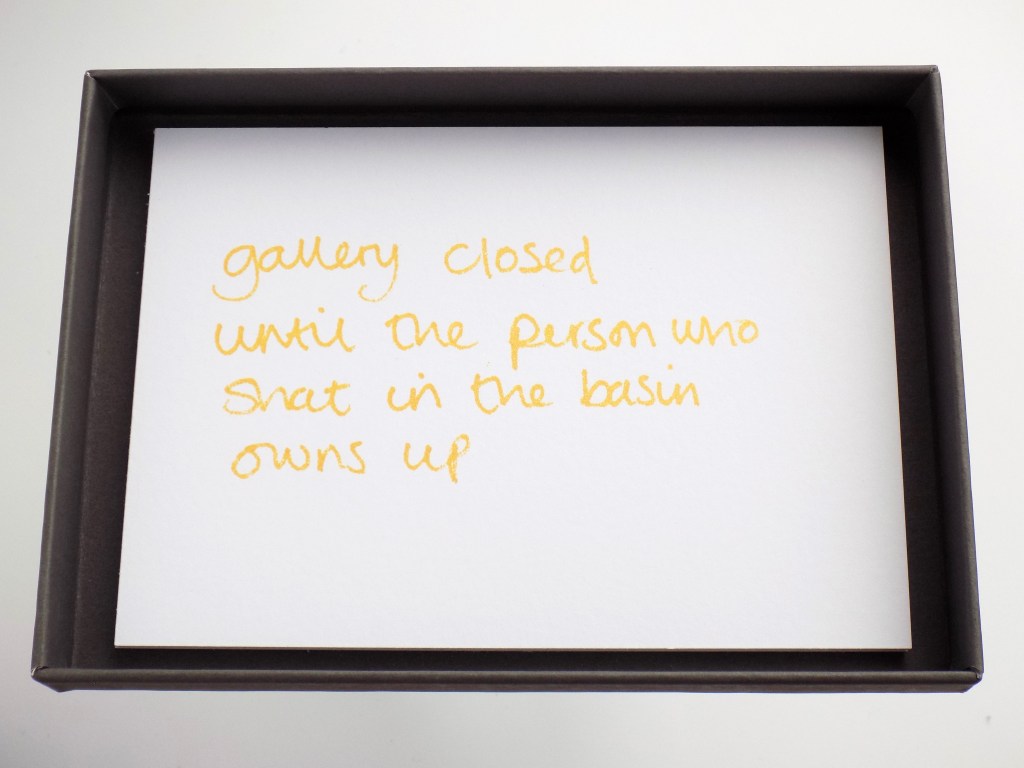 gallery closed
until the person who
shat in the basin
owns up